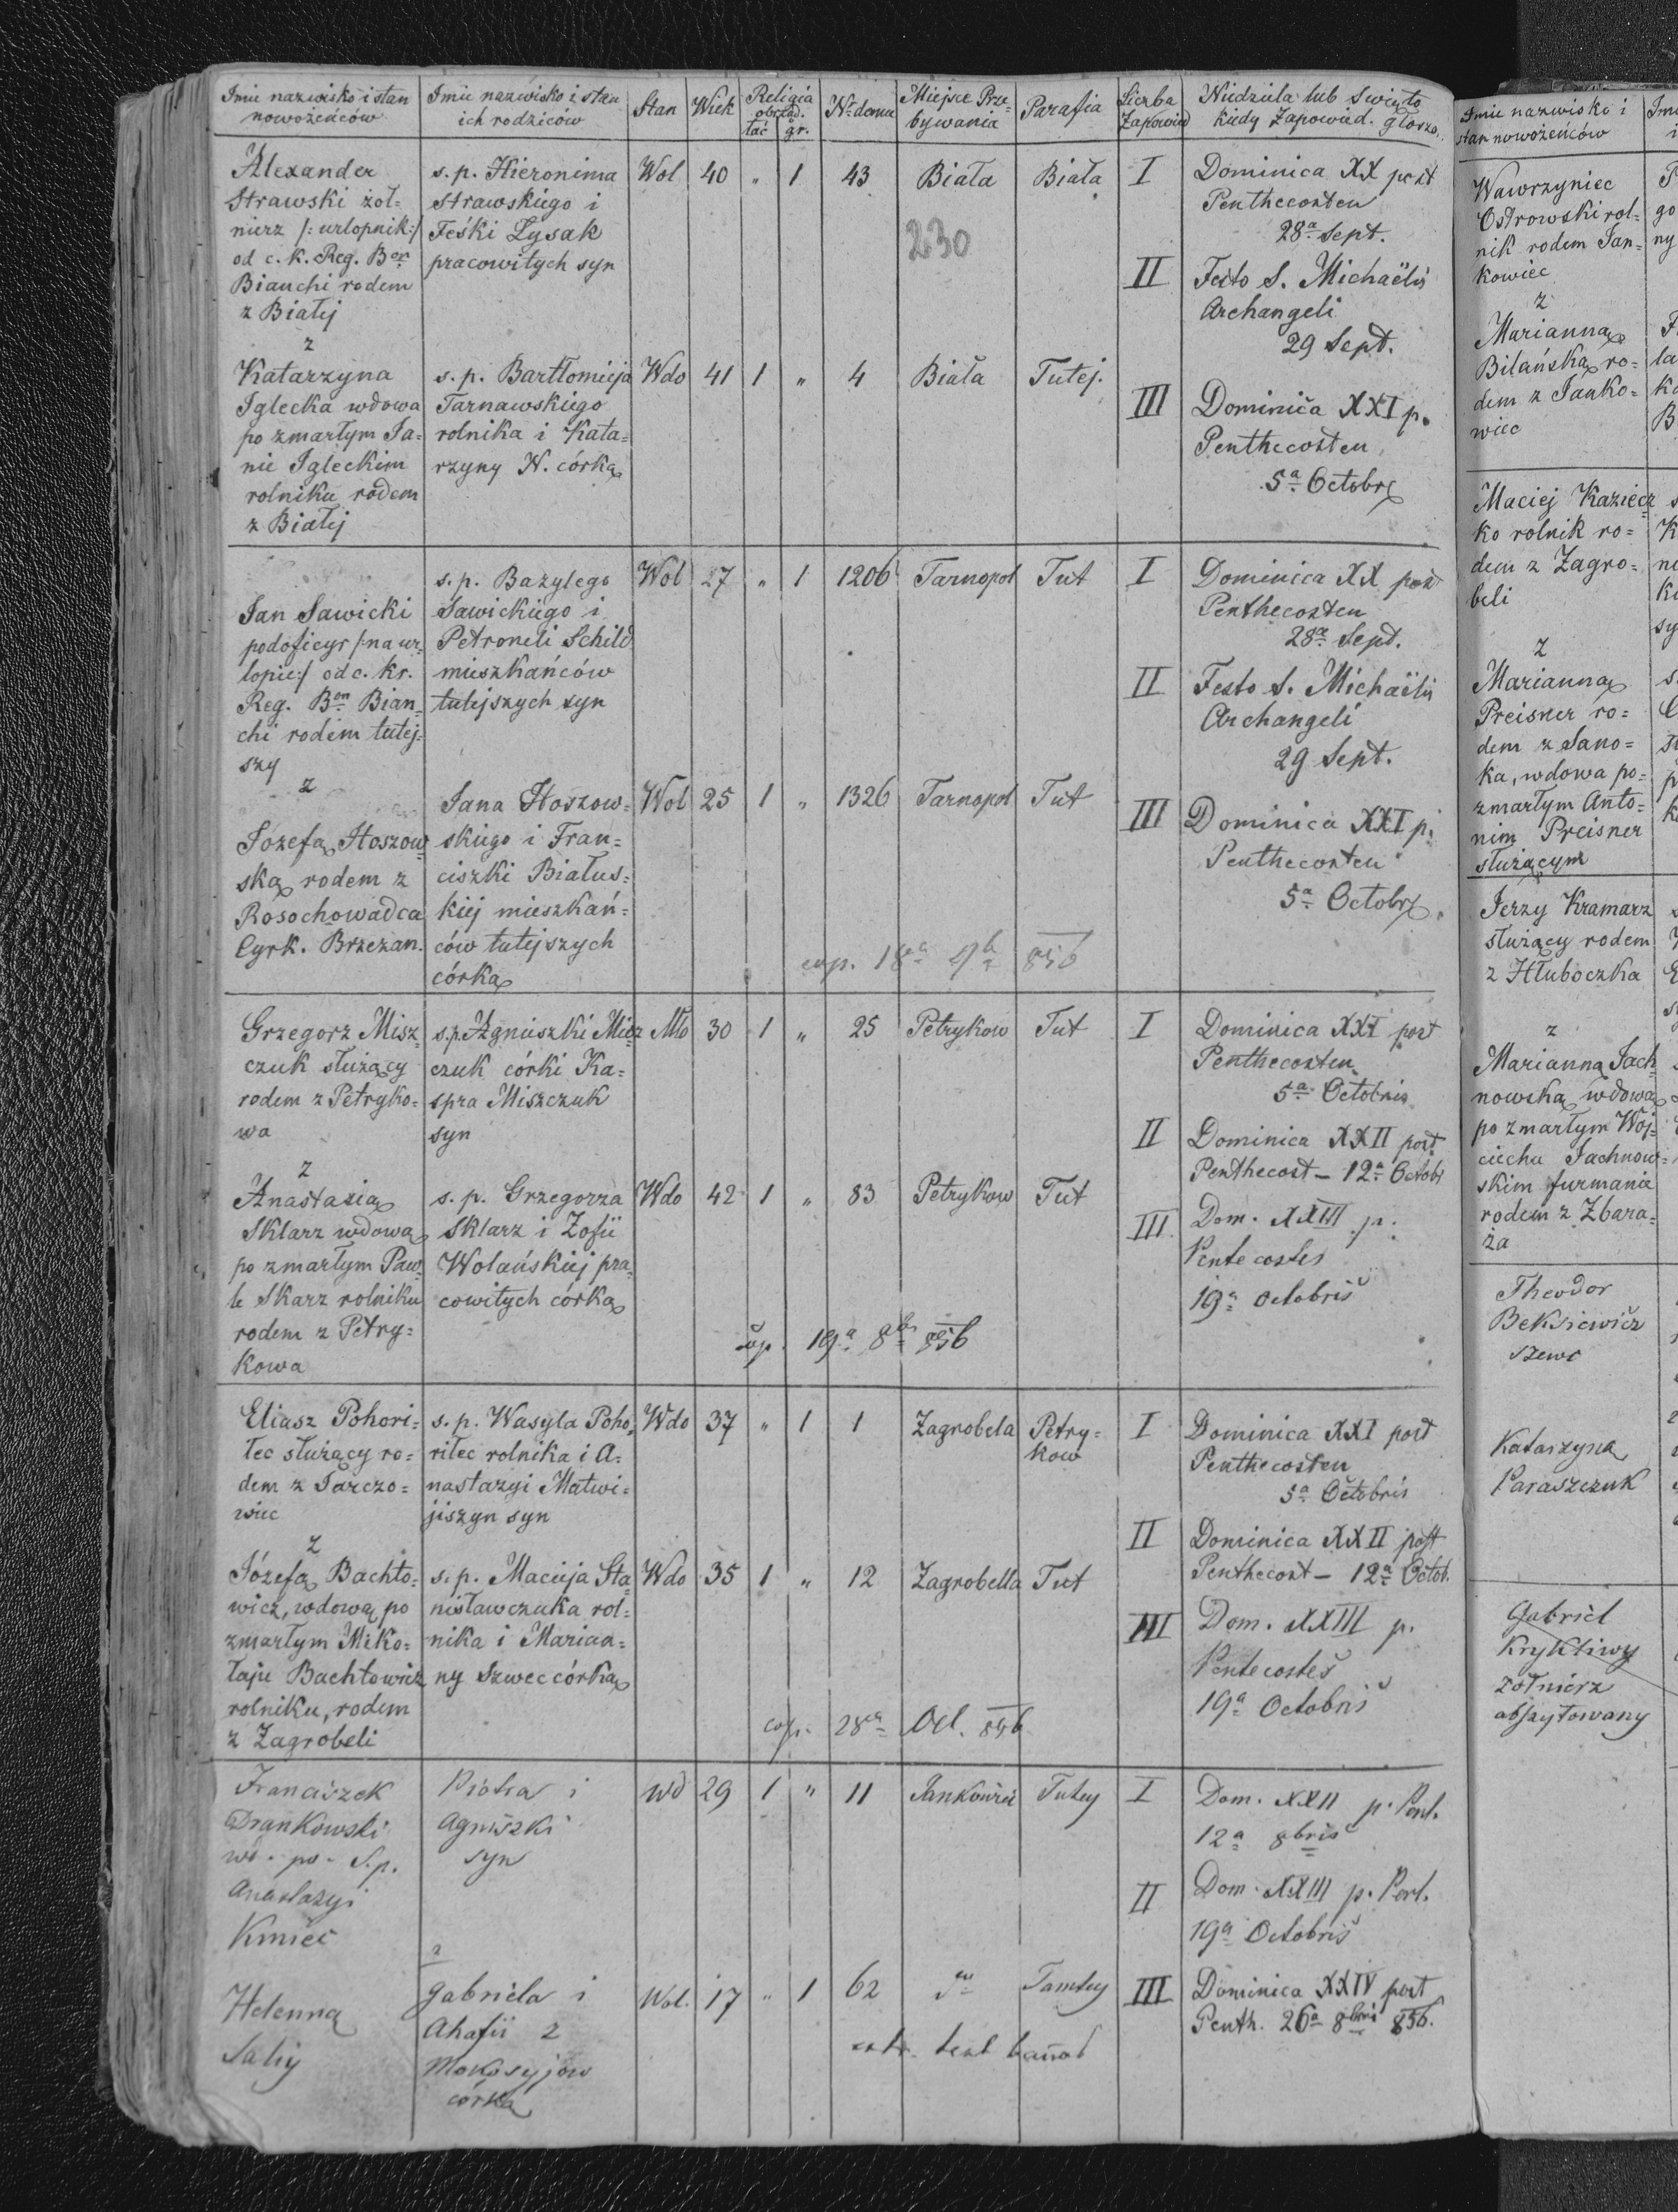 Imie nazwisko i stan nowożeńców
Imie nazwisko i stan ich rodziców
Stan
Wiek
Religia obrząd.
łać gr.
Nr domu
Miejsce Prze=
bywania
Parafia
Liczba Zapowied
Niedziela lub Swięto
kiedy Zapowied. głoszo.
Alexander
Strawski żoł=
nierz /: urlopnik :/
od c. k. Reg. Bon
Bianchi rodem
z Białej
s. p. Hieronima
Strawskiego i
Feśki Lysak
pracowitych syn
Wol 40 " 1 43 Biała Biała
230
I Dominica XX post
Penthecosten
28a Sept.
II Festo S. Michaëlis
Archangeli
29 Sept.
z
Katarzyna
Iglecka wdowa
po zmarłym Ja=
nie Igleckim
rolniku rodem
z Białej
s. p. Bartłomieja
Tarnawskiego
rolnika i Kata=
rzyny N. córką
Wdo 41 1 " 4 Biała Tutej.
III Dominica XXI p.
Penthecosten
5a Octobr
Jan Sawicki
podoficyr /: na ur=
lopie :/ od c. kr.
Reg. Bon Bian=
chi rodem tutej=
szy
s. p. Bazylego
Sawickiego i
Petroneli Schild
mieszkańców
tutejszych syn
Wol 27 " 1 1206 Tarnopol Tut
I Dominica XX post
Penthecosten
28a Sept.
II Festo S. Michaëlis
Archangeli
29 Sept.
z
Józefą Hoszow=
ską rodem z
Rosochowadca
Cyrk. Brzezan.
Jana Hoszow=
skiego i Fran=
ciszki Białus=
kiej mieszkań=
ców tutejszych
córką
Wol 25 1 " 1326 Tarnopol Tut
III Dominica XXI p.
Penthecosten
5a Octobr
cop. 18a 9b 856
Grzegorz Misz=
czuk służący
rodem z Petryko=
wa
s. p. Agnieszki Misz
czuk córki Ka=
spra Miszczuk
syn
Mło 30 1 " 25 Petrykow Tut
I Dominica XXI post
Penthecosten
5a Octobris
II Dominica XXII post
Penthecost - 12a Octob
z
Anastazią
Sklarz wdową
po zmarłym Paw=
le Skarz rolniku
rodem z Petry=
kowa
s. p. Grzegorza
Sklarz i Zofii
Wolańskiej pra=
cowitych córką
Wdo 42 1 " 83 Petrykow Tut
III Dom. XXIII p.
Pentecostes
19a Octobris
cop. 19a 8b 856
Eliasz Pohori=
lec służący ro=
dem z Tarczo=
wiec
s. p. Wasyla Poho=
rilec rolnika i A=
nastazyi Matwi=
jiszyn syn
Wdo 37 " 1 1 Zagrobela Petry=
kow
I Dominica XXI post
Penthecosten
5a Octobris
II Dominica XXII post
Penthecost - 12a Octob.
z
Józefą Bachto=
wicz, wdową po
zmarłym Miko=
łaju Bachtowicz
rolniku, rodem
z Zagrobeli
s. p. Macieja Sta=
nisławczuka rol=
nika i Marian=
ny Szwec córką
Wdo 35 1 " 12 Zagrobella Tut
III Dom. XXIII p.
Pentecostes
19a Octobris
cop. 28a Oct. 856
Franciszek
Drankowski
wd. po. S. p.
Anastazyi
Kmieć
Piotra i
Agniszki
syn
Wd 29 1 " 11 Jankowiec Tutey
I Dom. XXII p. Pent.
12a 8bris
II Dom. XXIII p. Pent.
19a Octobris
z
Helenną
Saliy
Gabriela i
Ahafii z
Mokosyjow
córką
Wol. 17 " 1 62 Tamtey
III Dominica XXIV post
Penth. 26a 8bris 856.
Imie nazwisko i
stan nowożeńców
Wawrzyniec
Ostrowski rol=
nik rodem Jan=
kowiec
z
Marianną
Bilańską ro=
dem z Janko=
wiec
Maciej Kaziecz
ko rolnik ro=
dem z Zagro=
beli
z
Marianną
Preisner ro=
dem z Sano=
ka, wdowa po=
zmarłym Anto=
nim Preisner
służącym
Jerzy Kramarz
służący rodem
z Hłuboczka
z
Marianną Jach=
nowską wdową
po zmarłym Woj=
ciechu Jachnow=
skim furmanie
rodem z Zbara=
ża
Theodor
Beksiewicz
szewc
Katarzyną
Paraszczuk
Gabriel
Krykliwy
żołnierz
abszytowany